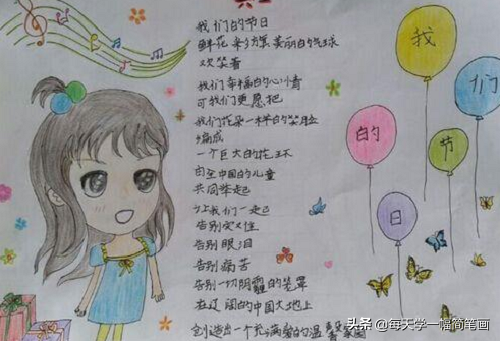 我们的节日
鲜花 美丽的气球
欢笑着
我们幸福的心情
可我们更愿把
我们花朵一样的笑脸
编成
一个巨大的花环
由全中国的儿童
共同举起
让我们一起
告别
告别眼泪
告别痛苦
告别一切阴霾的笼罩
在辽阔的中国大地上
创造出一个充满爱的温馨家园
我
们
的
节
日
头条 @每天学一幅简笔画